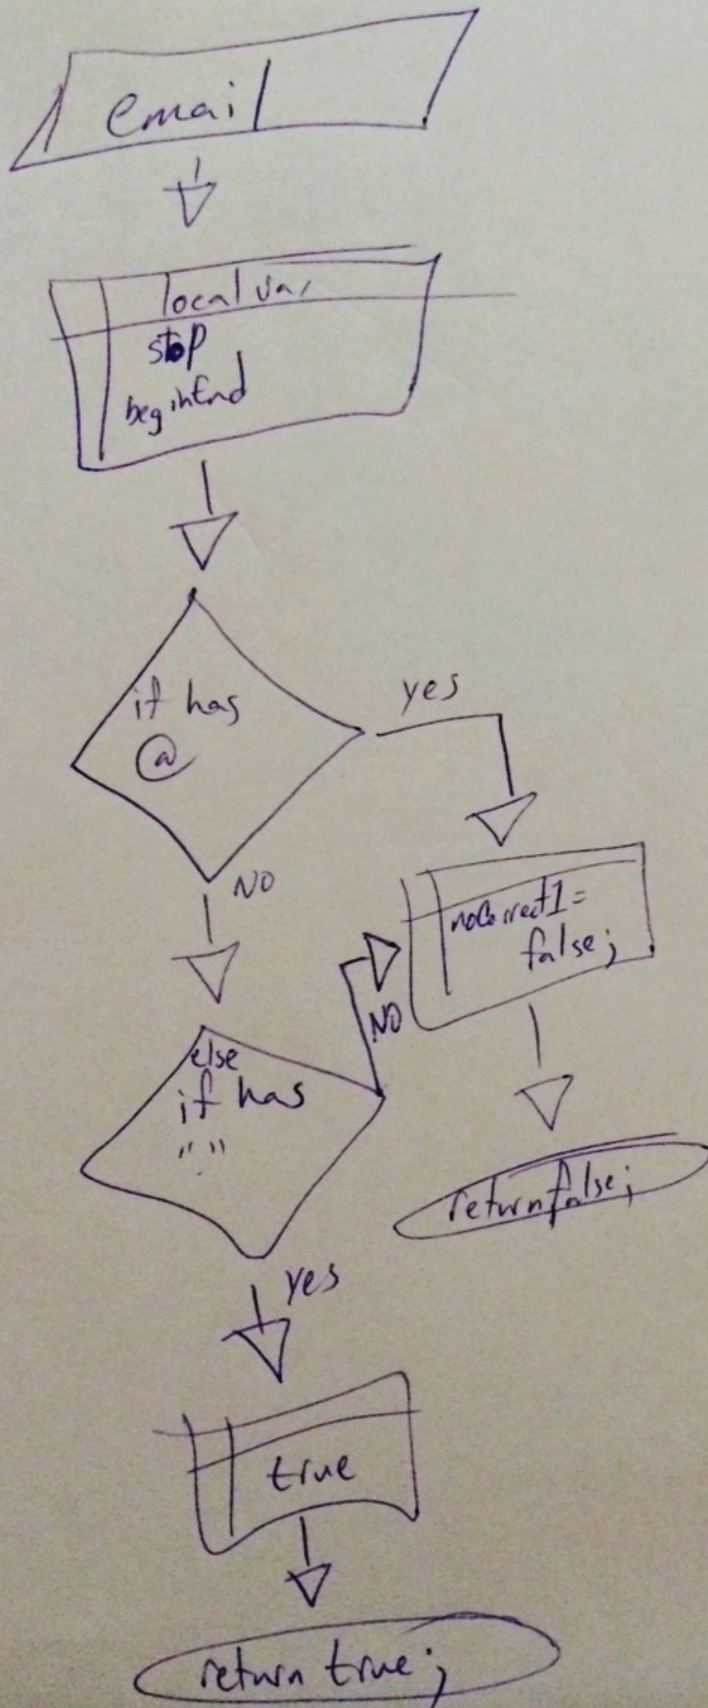 email
local var
stop
beginEnd
if has
@
yes
NO
noCorrect1 =
false;
else
if has
"."
NO
return false;
yes
true
return true;